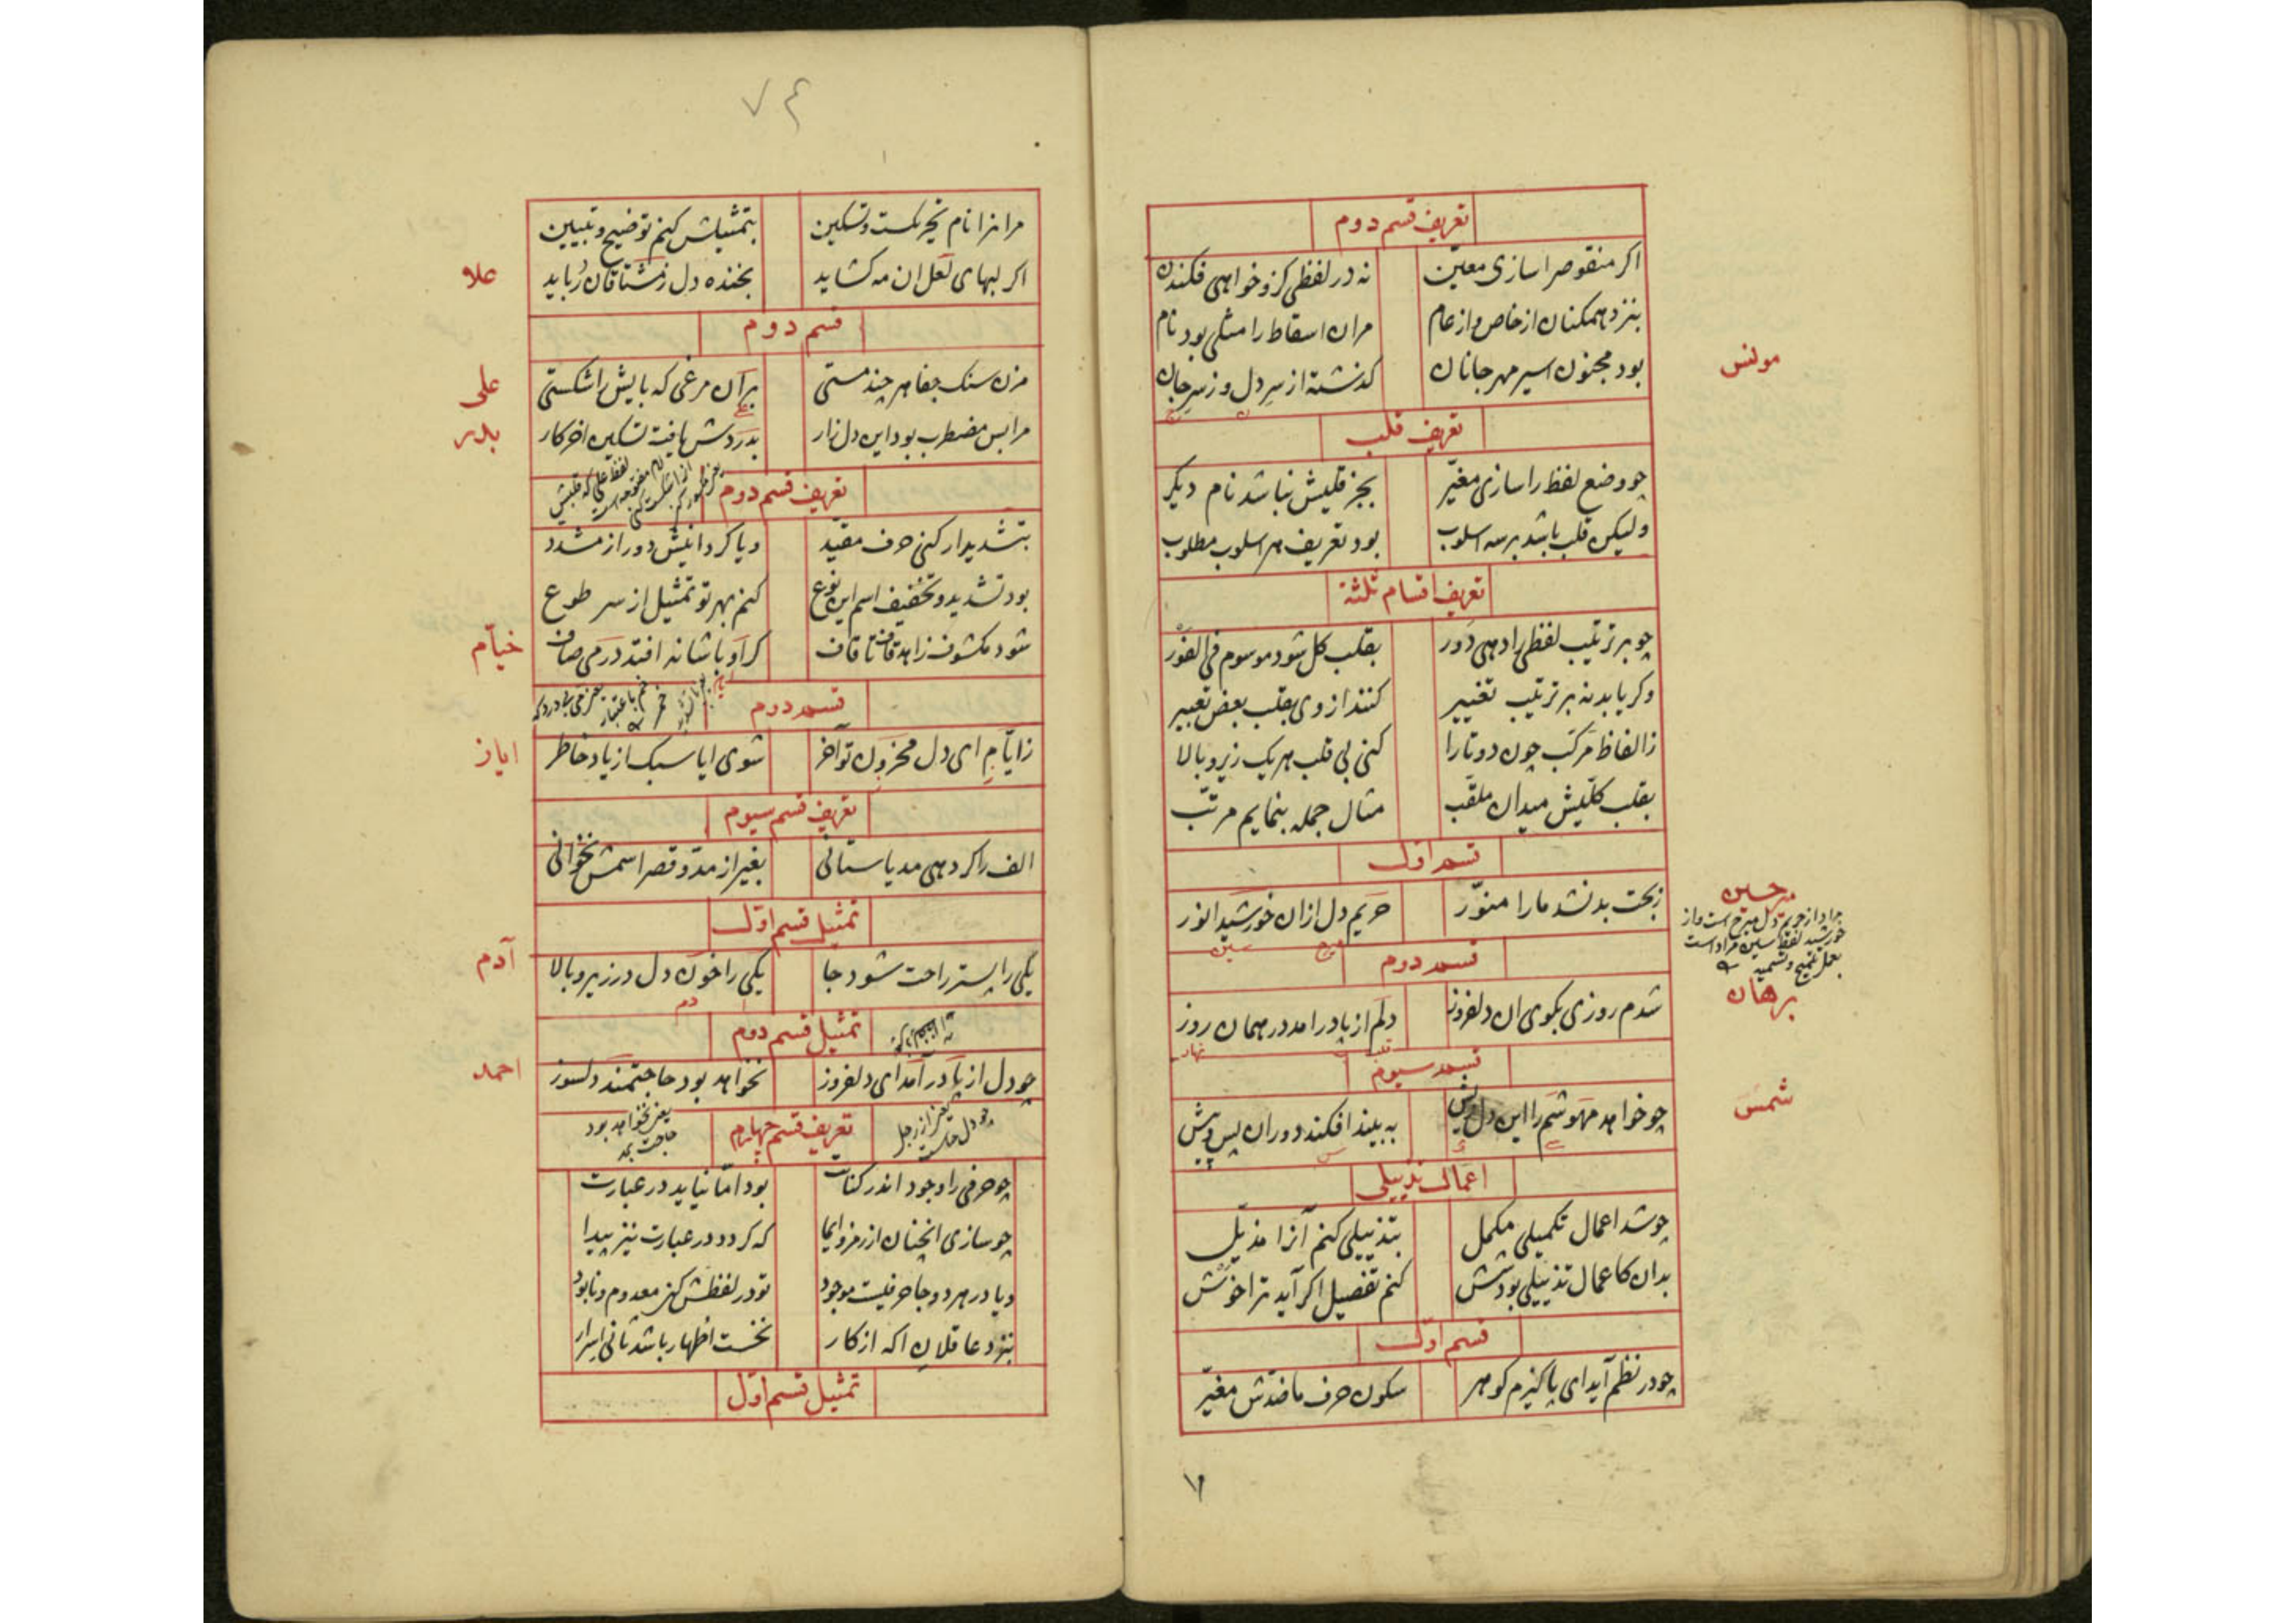 تعریف قسم دوم
اکر منقوصرا سازی معیّن نه در لفظی کزو خواهی فکندن
بنزد همکنان از خاص و از عام مران اسقاط را مثلی بود نام
بود مجنون اسیر مهر جانان کذشته از سر دل وز سر جان
مونس
تعریف قلب
چو وضع لفظ را سازی مغیّر بجز قلبش نباشد نام دیکر
ولیکن قلب باشد بر سه اسلوب بود تعریف هر اسلوب مطلوب
تعریف اقسام ثلثه
چو بر ترتیب لفظی را دهی دور بقلب کل شود موسوم فی الفور
وکر یابد نه بر ترتیب تغییر کنند از وی بقلب بعض تعبیر
ز الفاظ مرکب چون دو تا را کنی بی قلب هر یک زیر و بالا
بقلب کلّیش میدان ملقّب مثال جمله بنمایم مرتّب
قسم اوّل
زبخت بد نشد ما را منوّر حریم دل ازان خورشید انور
حسین
مراد از حریم دل است و از
خورشید لفظ سین مراد است
بعمل تلمیح و تسمیه
قسم دوم
شدم روزی بکوی ان دلفروز دلم از پا درامد در همان روز
برهان
قسم سیوم
چو خواهد مهوشم را این دل ریش به بیند افکند دوران پس و پیش
شمس
اعمال تذییلی
چو شد اعمال تکمیلی مکمل بتذییلی کنم آنرا مذیّل
بدان کاعمال تذییلی بود شش کنم تفصیل اکر آید ترا خوش
قسم اوّل
چو در نظم آید ای پاکیزه کوهر سکون حرف ما ضدّش مغیّر
۷۴
مرانرا نام تحریکست و تسکین بتمثیلش کنم توضیح و تبیین
اکر لبهای لعل ان مه کشاید بخنده دل ز مشتاقان رباید
علا
قسم دوم
مزن سنک جفا هر چند مستی بر آن مرغی که بایش را شکستی
علی
مرا بس مضطرب بود این دل زار بدردش یافت تسکین اخر کار
بدر
تعریف قسم دوم
بتشدید ار کنی حرف مقیّد ویا کردانیش دور از مشدد
بود تشدید و تخفیف اسم این نوع کنم بهر تو تمثیل از سر طوع
شود مکشوف زاهد قاف تا قاف کر او با شانه افتد در می صاف
خیّام
قسم دوم
ز ایّام ای دل محزون تو آخر شوی ایا سبک از یاد خاطر
ایاز
تعریف قسم سیوم
الف را کر دهی مد یا ستانی بغیر از مدّ و قصر اسمش نخوانی
تمثیل قسم اوّل
یکی را بستر راحت شود جا یکی را خون دل در زیر و بالا
آدم
دم
تمثیل قسم دوم
چو دل از پا در آمد ای دلفروز نخواهد بود حاجتمند دلسوز
احمد
تعریف قسم چهارم
یعنی نخواهد بود
چو حرفی را وجود اندر کتابت بود امّا نیاید در عبارت
چو سازی انچنان از رمز و ایما که کردد در عبارت نیز پیدا
ویا در هر دو جا حرفیست موجود تو در لفظش کنی معدوم و نابود
بنزد عاقلان اکه از کار نخست اظهار باشد ثانی اسرار
تمثیل قسم اوّل